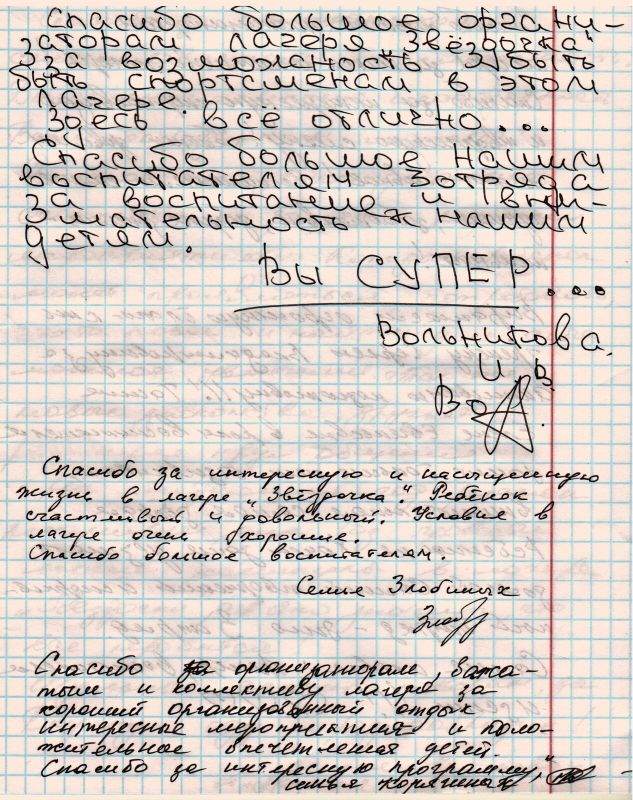 Спасибо большое органи-
заторам лагеря „Звёздочка"
за возможность быть
быть спортсменам в этом
лагере.
Здесь всё отлично...
Спасибо большое нашим
воспитателям 3отряда
за воспитание и вни-
мательность к нашим
детям.
Вы СУПЕР...
Вольникова.
И.В.
Спасибо за интересную и насыщенную
жизнь в лагере „Звёздочка". Ребёнок
счастливый и довольный. Условие в
лагере очень хорошие.
Спасибо большое воспитателям.
Семья Злобиных
Злоб
Спасибо организаторам, вожа-
тым и коллективу лагеря за
хороший организованный отдых
интересные мероприятия и поло-
жительное впечетления детей.
Спасибо за интересную программу,
семья Корягиных